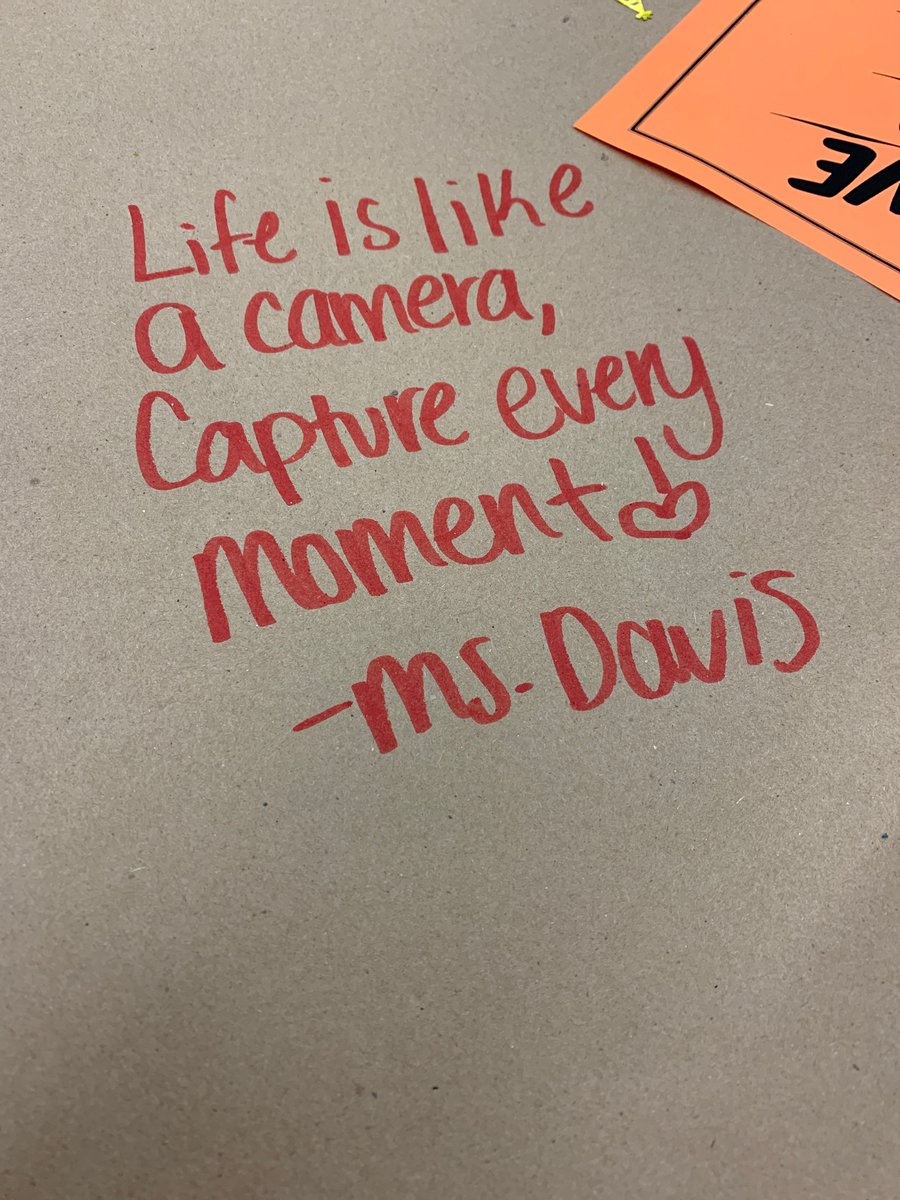 Life is like
a camera,
Capture every
Moment!
-Ms. Davis